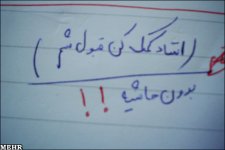 (استاد کمک کن قبول شم)
بدون حاشیه!!
MEHR